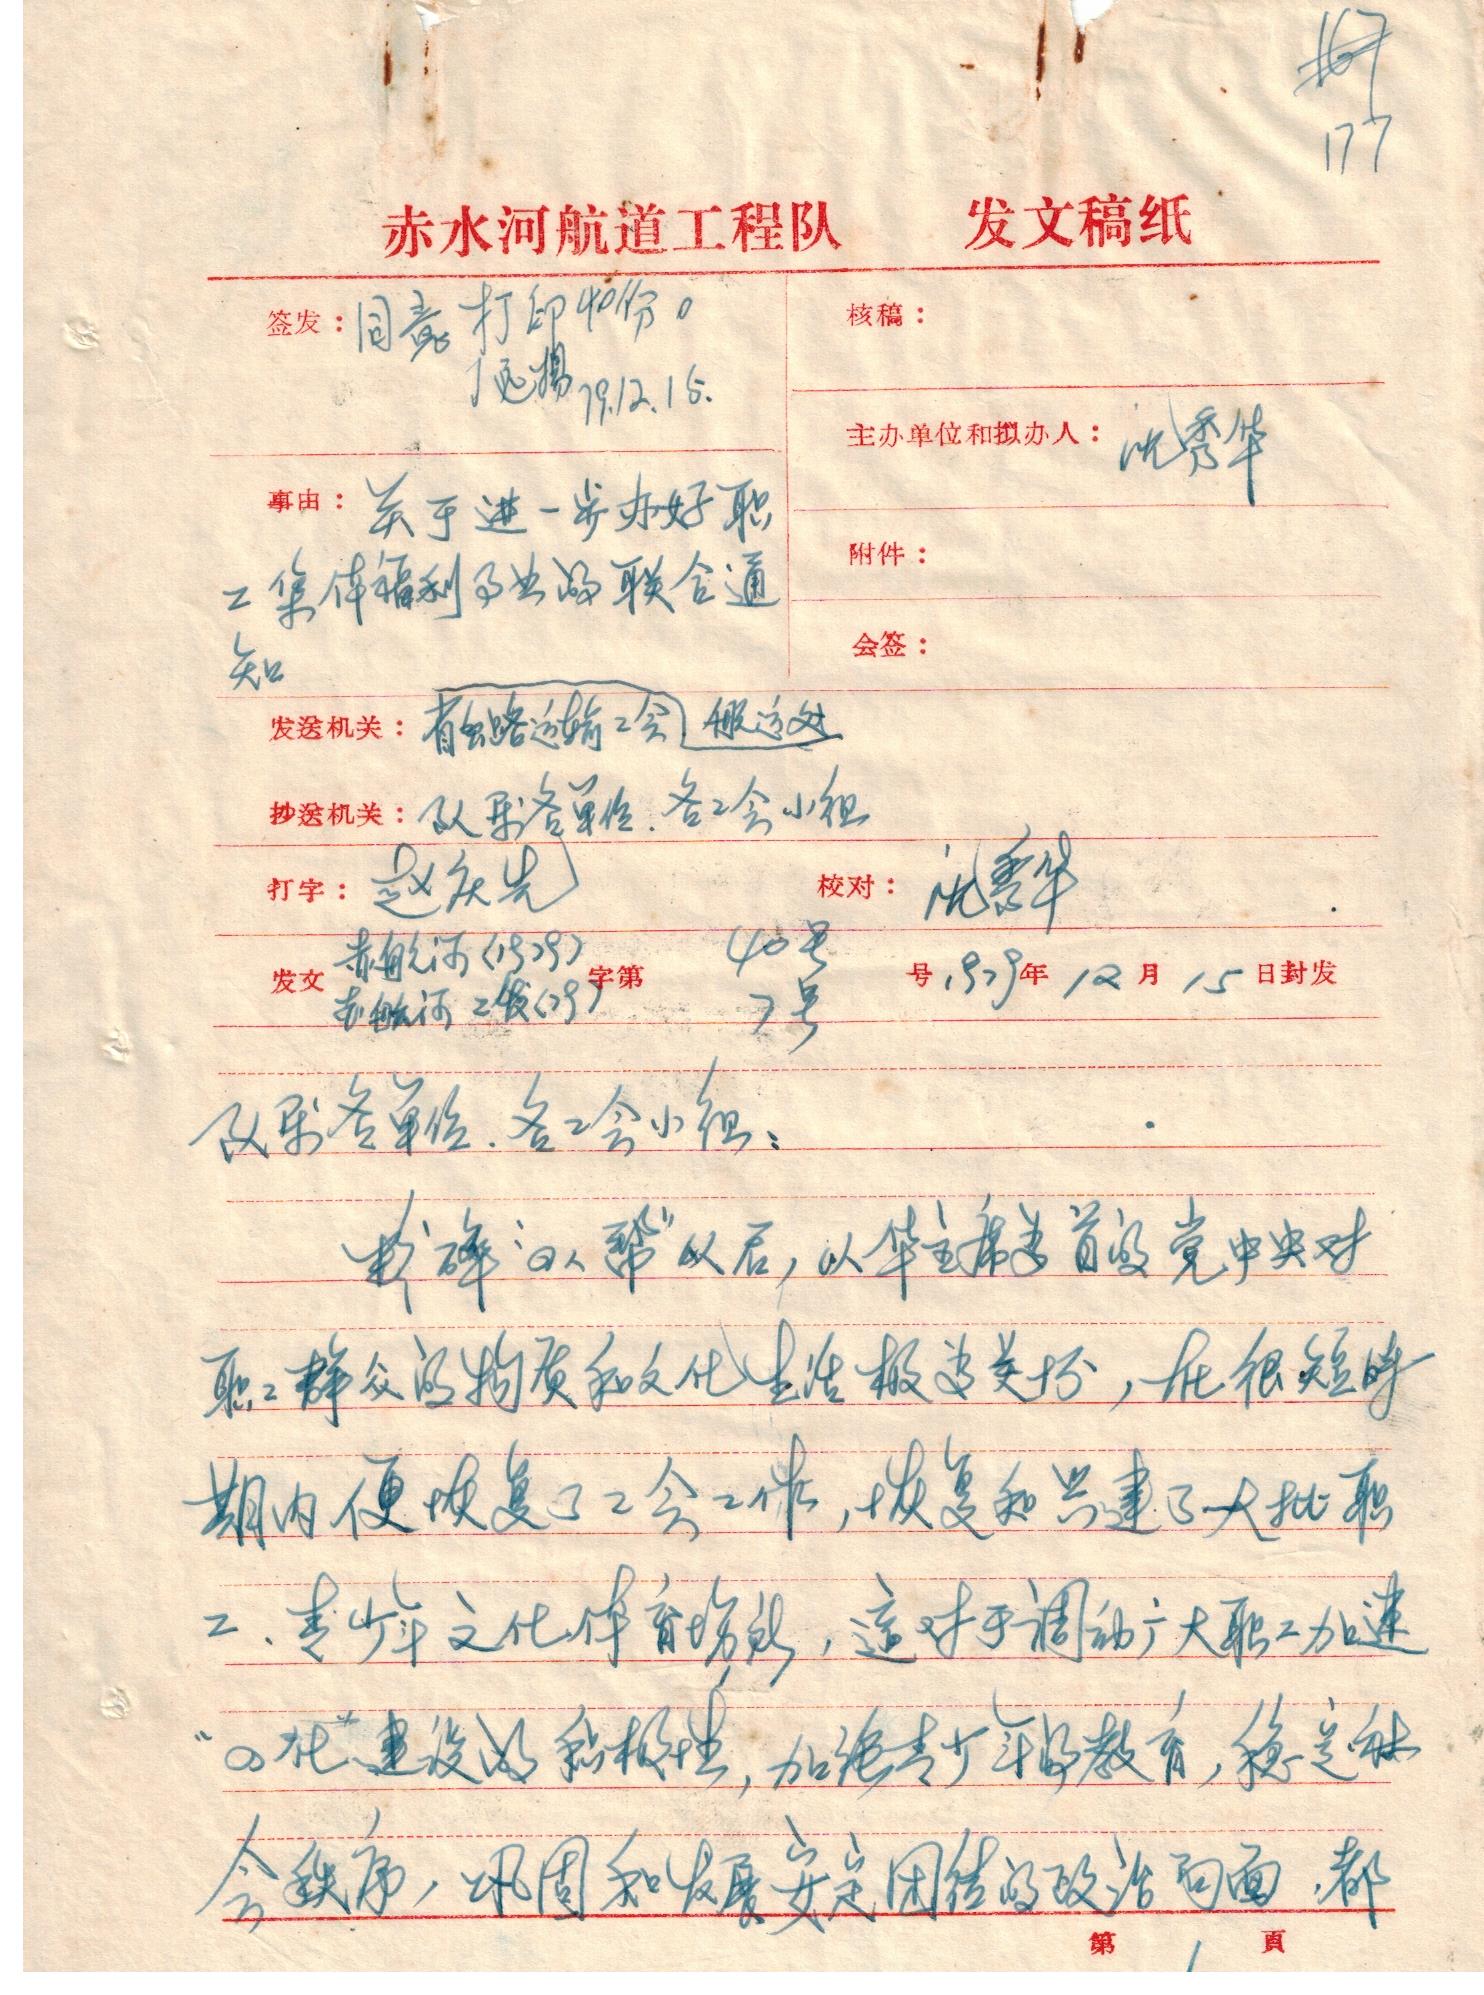 177
赤水河航道工程队 发文稿纸
签发：同意打印40份。
79.12.15.
核稿：
主办单位和拟办人：沈秀华
事由：关于进一步办好职
工集体福利事业的联合通
知
附件：
会签：
发送机关：省公路运输工会 航运处
抄送机关：队属各单位.各工会小组
打字：赵庆先 校对：沈秀华
发文 赤航河(1979) 字第 40号 号 1979年12月15日封发
赤航河工发(79) 7号
队属各单位.各工会小组：
粉碎“四人帮”以后，以华主席为首的党中央对
职工群众的物质和文化生活极为关怀，在很短时
期内便恢复了工会工作，恢复和兴建了大批职
工、青少年文化体育场所，这对于调动广大职工加速
“四化”建设的积极性，加强青少年的教育，稳定社
会秩序，巩固和发展安定团结的政治局面，都
第1頁